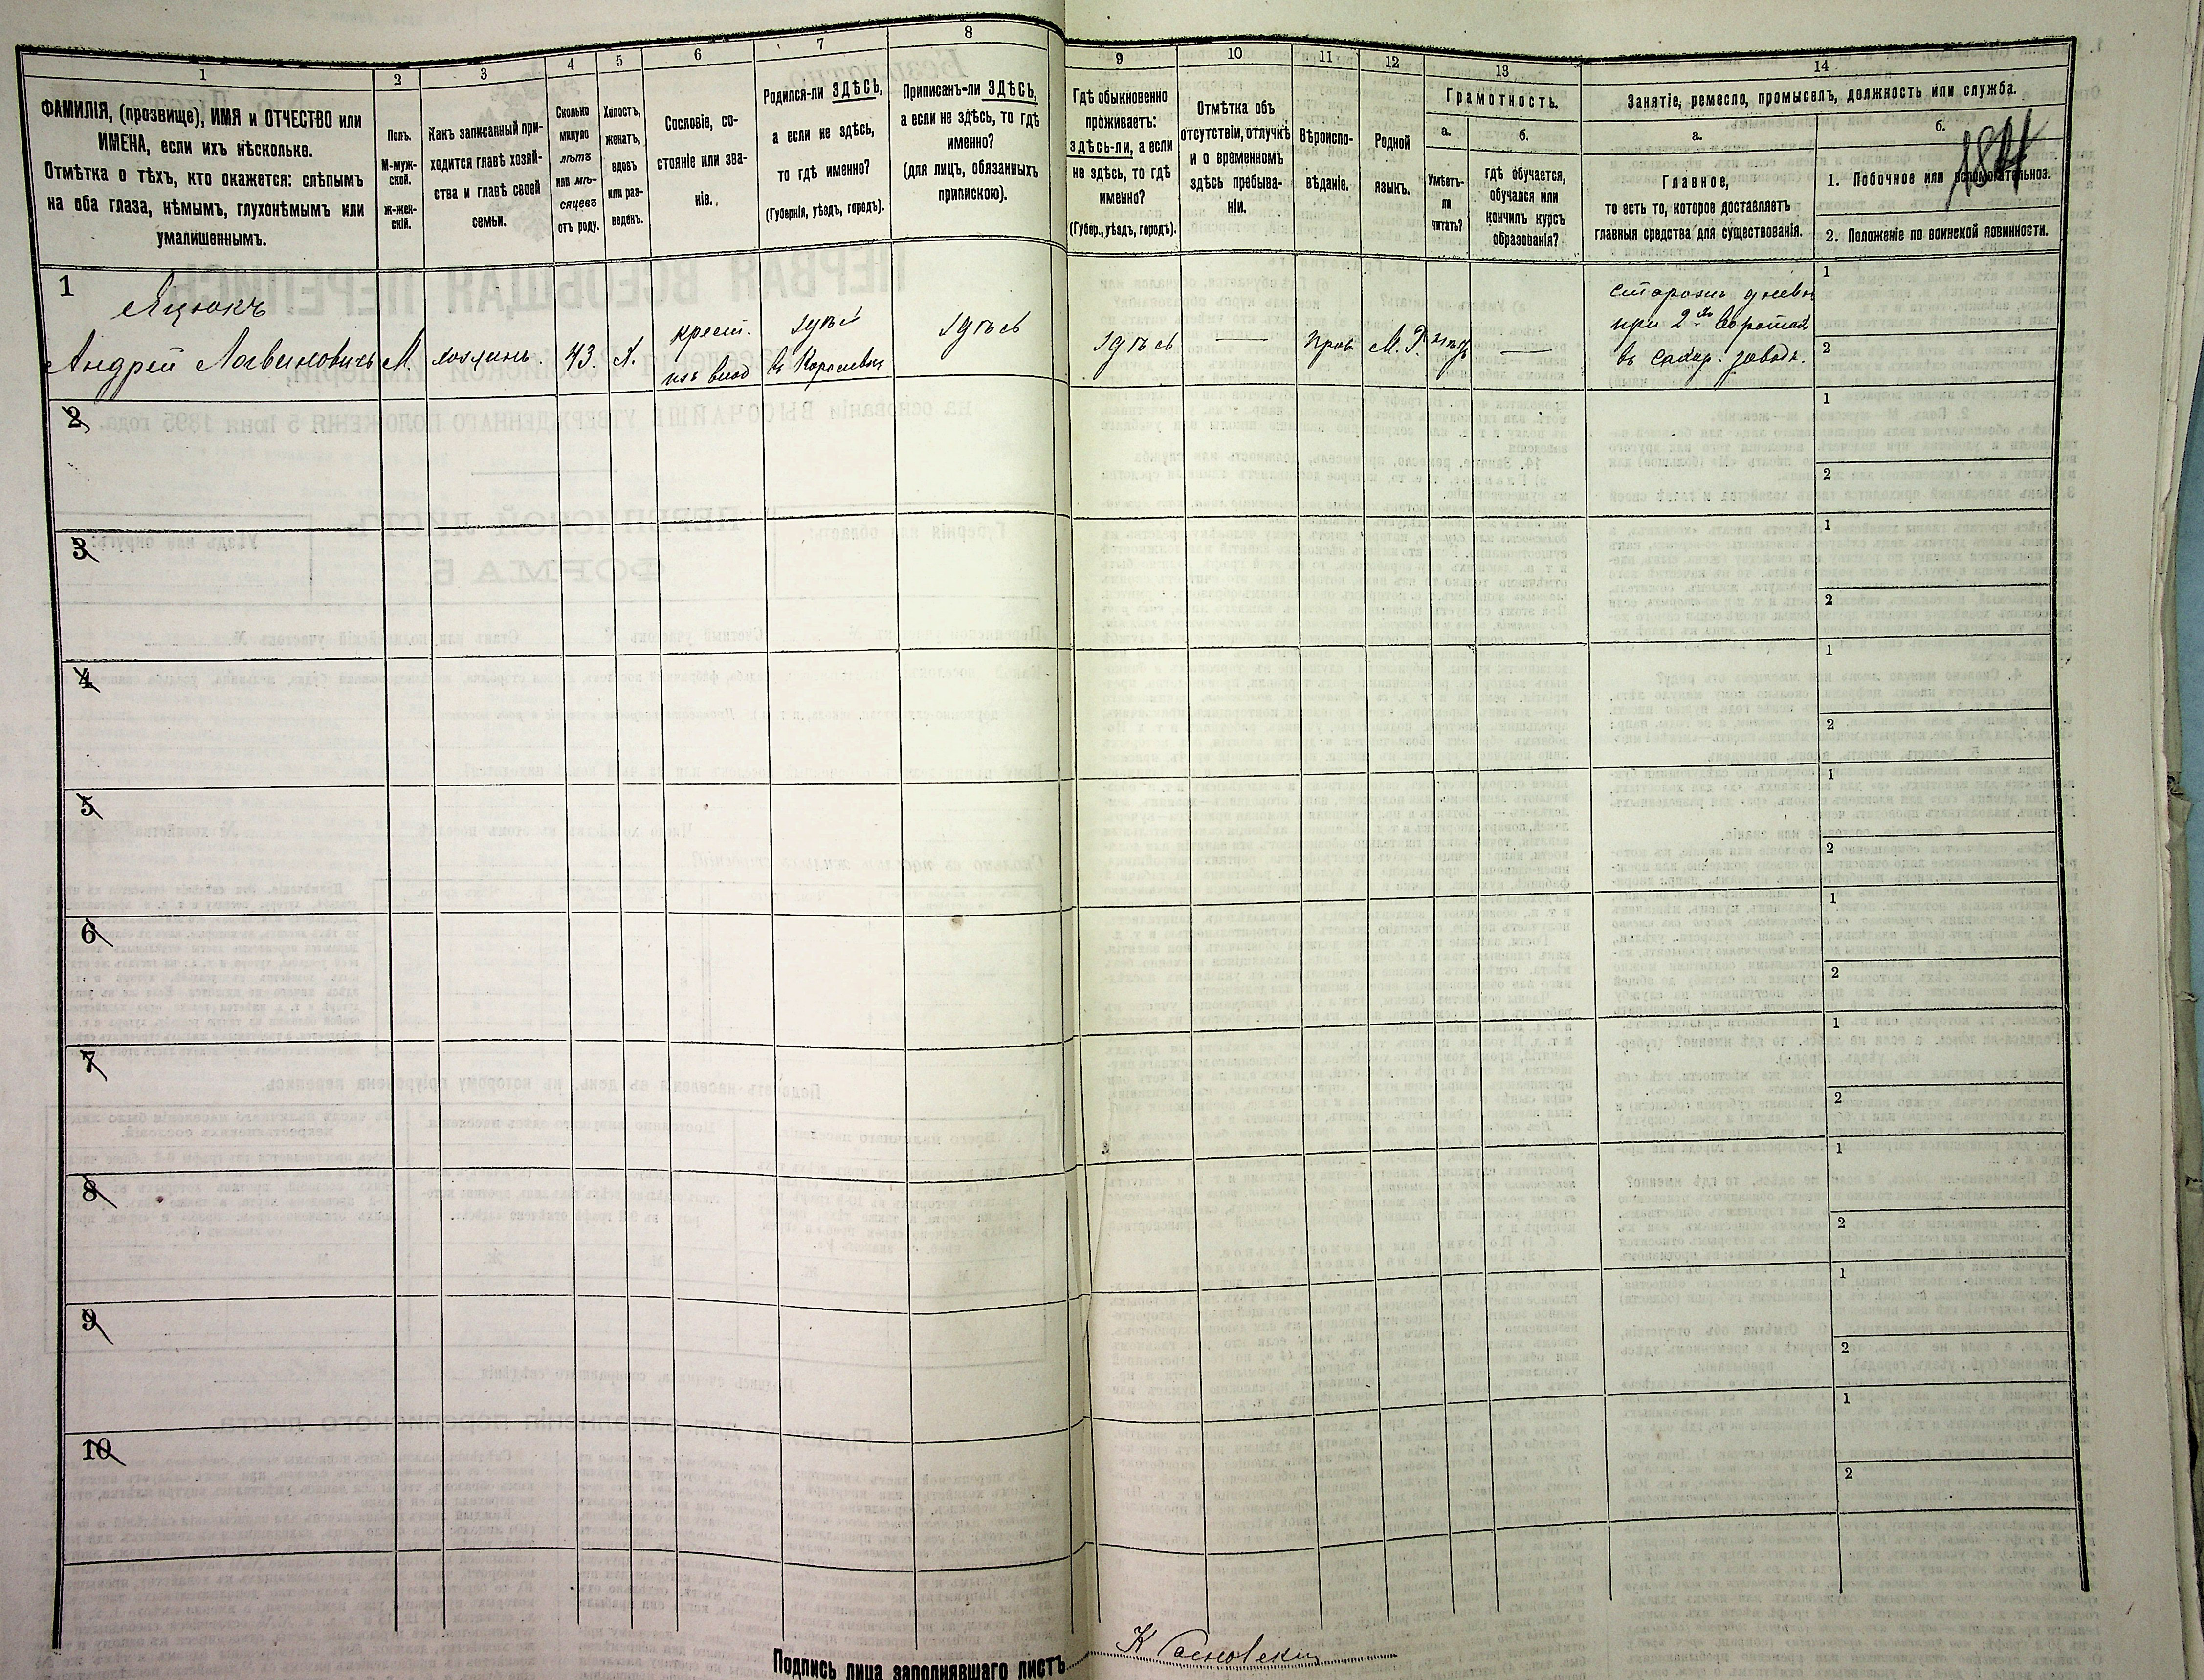 1 2 3 4 5 6 7 8 9 10 11 12 13 14
ФАМИЛІЯ, (прозвище), ИМЯ и ОТЧЕСТВО или
ИМЕНА, если ихъ нѣсколько.
Отмѣтка о тѣхъ, кто окажется: слѣпымъ
на оба глаза, нѣмымъ, глухонѣмымъ или
умалишеннымъ.
Полъ.
М-муж-
ской.
ж-жен-
скій.
Какъ записанный при-
ходится главѣ хозяй-
ства и главѣ своей
семьи.
Сколько
минуло
лѣтъ
или мѣ-
сяцевъ
отъ роду.
Холостъ,
женатъ,
вдовъ
или раз-
веденъ.
Сословіе, со-
стояніе или зва-
ніе.
Родился-ли ЗДѢСЬ,
а если не здѣсь,
то гдѣ именно?
(Губернія, уѣздъ, городъ).
Приписанъ-ли ЗДѢСЬ,
а если не здѣсь, то гдѣ
именно?
(для лицъ, обязанныхъ
припискою).
Гдѣ обыкновенно
проживаетъ:
здѣсь-ли, а если
не здѣсь, то гдѣ
именно?
(Губер., уѣздъ, городъ).
Отмѣтка объ
отсутствіи, отлучкѣ
и о временномъ
здѣсь пребыва-
ніи.
Вѣроиспо-
вѣданіе.
Родной
языкъ.
Грамотность.
а.
Умѣетъ-
ли
читать?
б.
гдѣ обучается,
обучался или
кончилъ курсъ
образованія?
Занятіе, ремесло, промыселъ, должность или служба.
а.
Главное,
то есть то, которое доставляетъ
главныя средства для существованія.
б.
1. Побочное или вспомогательное.
2. Положеніе по воинской повинности.
1
Яцюкъ
Андрей Логвиновичъ
М.
хозяинъ.
43.
крест.
изъ влад
здѣсь
здѣсь
здѣсь
—
прав
М. Р.
нѣтъ
—
сторожъ
при 2
въ сахар. заводѣ.
1
2
2
1
2
3
1
2
4
1
2
5
1
2
6
1
2
7
1
2
8
1
2
9
1
2
10
1
2
Подпись лица заполнявшаго листъ